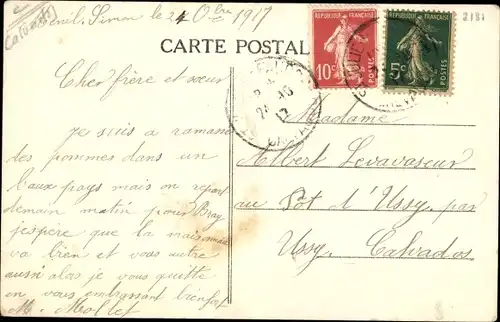 le 24 Obre 1917
Calvados
2181
CARTE POSTALE
10c POSTES
5c POSTES
24 - 10
17
Cher frère et sœur
Je suis a ramasser
des pommes dans un
beau pays mais on repart
demain matin pour Bray
jespère que la maisonnée
va bien et vous autre
aussi alors je vous quitte
en vous embrassant bien fort
Madame
Albert Levavasseur
au Pôt d'Ussy, par
Ussy, Calvados